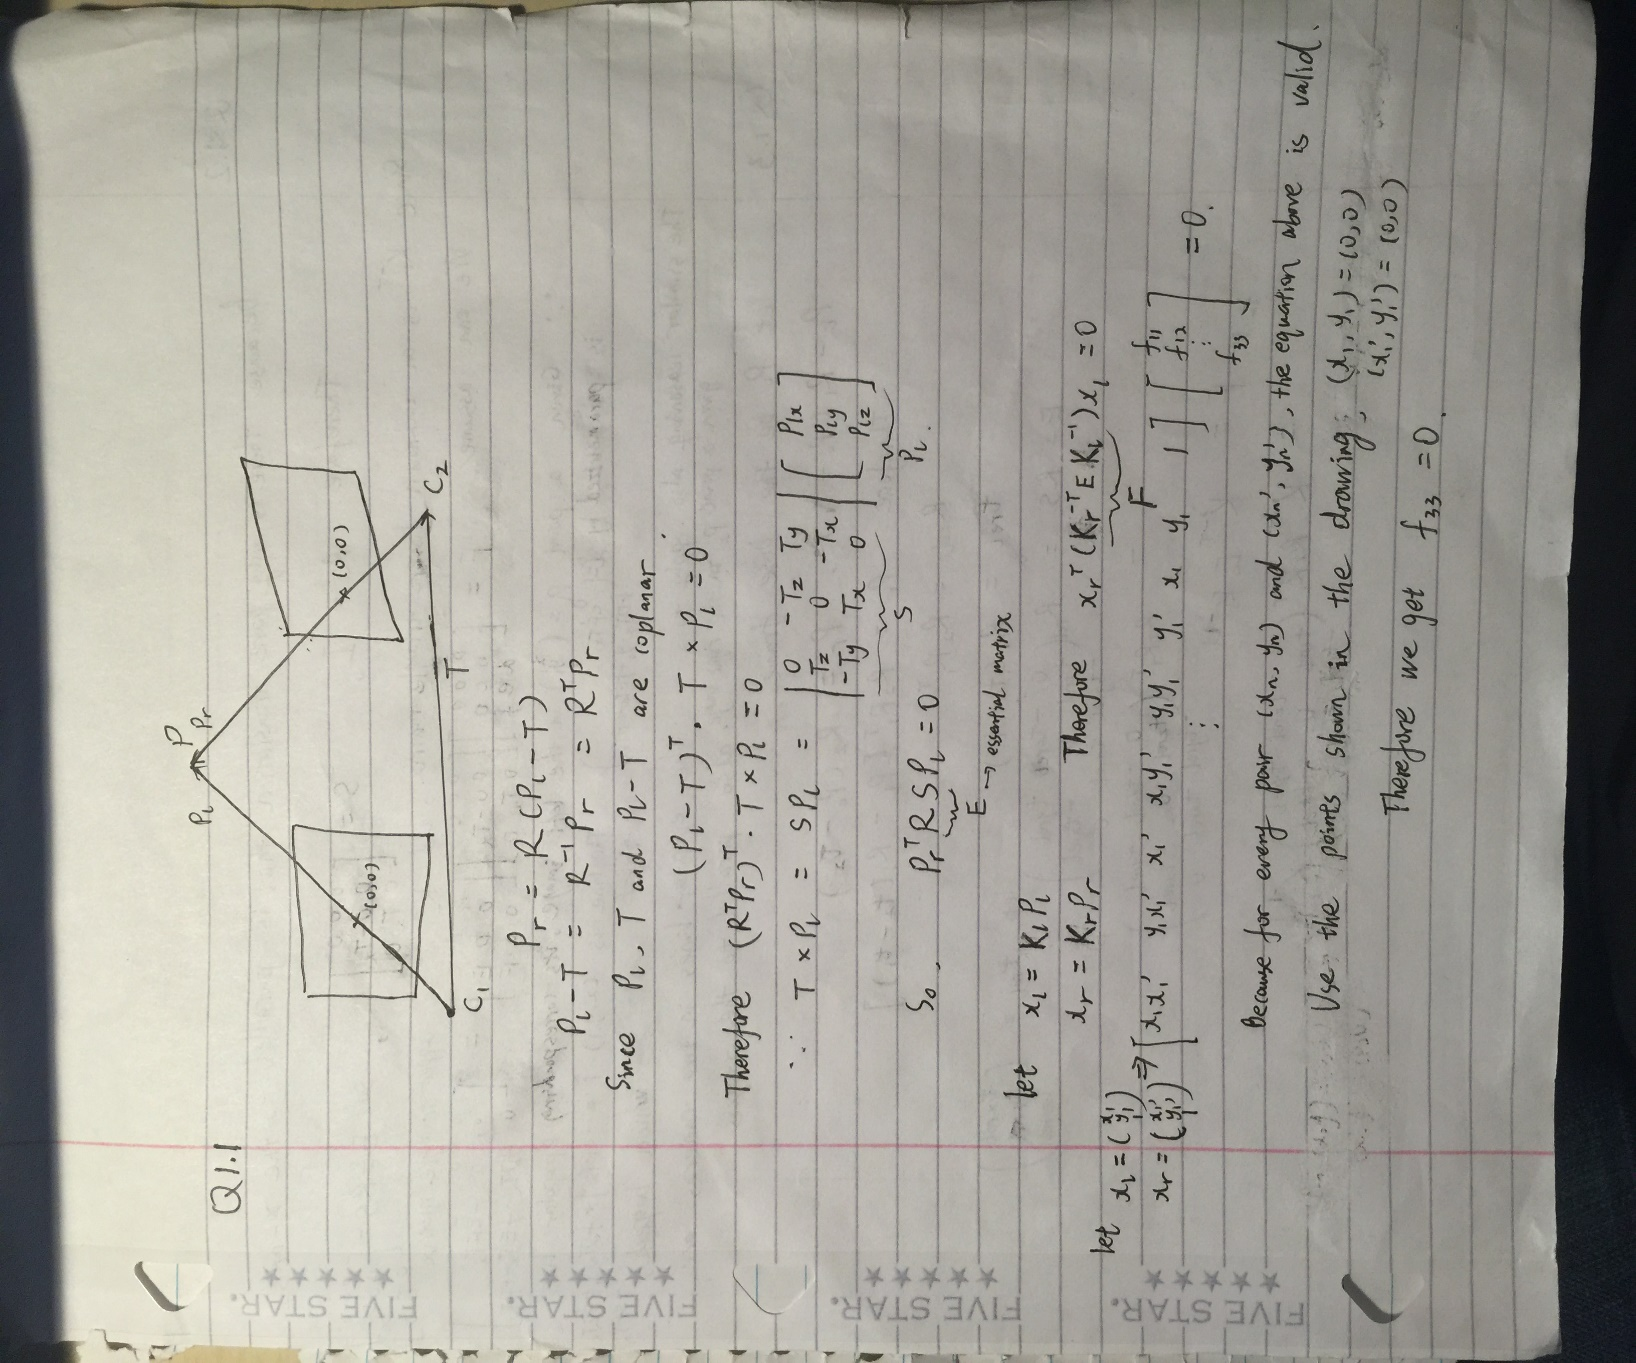 Q1.1
P
Pl Pr
(0,0) (0,0)
C1 T C2
Pr = R(Pl - T)
Pl - T = R⁻¹Pr = RᵀPr
Since Pl, T and Pl-T are coplanar.
(Pl-T)ᵀ · T × Pl = 0
Therefore (RᵀPr)ᵀ · T × Pl = 0
∵ T × Pl = SPl = | 0 -Tz Ty | [ Plx ]
| Tz 0 -Tx | [ Ply ]
| -Ty Tx 0 | [ Plz ]
S Pl.
So, PrᵀRSPl = 0
E → essential matrix
let xl = KlPl
xr = KrPr Therefore xrᵀ(Kr⁻ᵀEKl⁻¹)xl = 0
F
let xl = (x1 y1 1) ⇒ [x1x1' y1x1' x1' x1y1' y1y1' y1' x1 y1 1] [ f11 f12 ⋮ f33 ] = 0.
xr = (x1' y1' 1) ⋮
Because for every pair (xn, yn) and (xn', yn'), the equation above is valid.
Use the points shown in the drawing; (x1, y1) = (0,0)
(x1', y1') = (0,0)
Therefore we get f33 = 0.
FIVE STAR. ★★★★★
FIVE STAR. ★★★★★
FIVE STAR. ★★★★★
FIVE STAR. ★★★★★